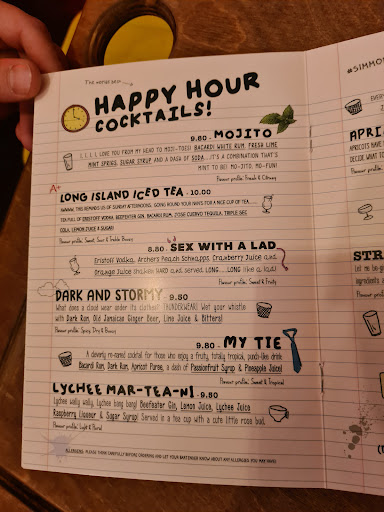 The horror skip
HAPPY HOUR
COCKTAILS!
#SIMMO
9.80 - MOJITO
I, I, I, I, LOVE YOU FROM MY HEAD TO MOJI-TOES! BACARDI WHITE RUM, FRESH LIME
MINT SPRIGS, SUGAR SYRUP AND A DASH OF SODA... IT'S A COMBINATION THAT'S
MINT TO BE! MO-JITO, MO-FUN!
Flavour profile: Fresh & Citrusy
A+
LONG ISLAND ICED TEA - 10.00
THIS REMINDS US OF SUNDAY AFTERNOONS, GOING ROUND YOUR NAN'S FOR A NICE CUP OF TEA...
TEA FULL OF ERISTOFF VODKA, BEEFEATER GIN, BACARDI RUM, JOSE CUERVO TEQUILA, TRIPLE SEC
COLA, LEMON JUICE & SUGAR!
Flavour profile: Sweet, Sour & Treble Boozy
8.80 - SEX WITH A LAD
Eristoff Vodka, Archers Peach Schnapps, Cranberry Juice and
Orange Juice shaken HARD and served LONG... LONG like a lad!
Flavour profile: Sweet & Fruity
DARK AND STORMY - 9.50
What does a cloud wear under its clothes? THUNDERWEAR! Wet your whistle
with Dark Rum, Old Jamaican Ginger Beer, Lime Juice & Bitters!
Flavour profile: Spicy, Dry & Boozy
9.80 - MY TIE
A cleverly re-named cocktail for those who enjoy a fruity, totally tropical, punch-like drink.
Bacardi Rum, Dark Rum, Apricot Puree, a dash of Passionfruit Syrup & Pineapple Juice!
Flavour profile: Sweet & Tropical
LYCHEE MAR-TEA-NI - 9.80
Lychee wally wally, Lychee bang bang! Beefeater Gin, Lemon Juice, Lychee Juice
Raspberry Liqueur & Sugar Syrup! Served in a tea cup with a cute little rose bud.
Flavour profile: Light & Floral
ALLERGENS: PLEASE THINK CAREFULLY BEFORE ORDERING AND LET YOUR BARTENDER KNOW ABOUT ANY ALLERGIES YOU MAY HAVE!
EVER
APRI
APRICOTS HAVE
DECIDE WHAT TO
STR
Let me be
ingredients a